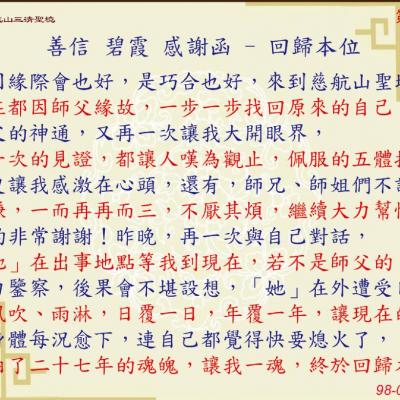 山三清聖境
善信 碧霞 感謝函 - 回歸本位
因緣際會也好，是巧合也好，來到慈航山聖
在都因師父緣故，一步一步找回原來的自己
的神通，又再一次讓我大開眼界，
一次的見證，都讓人嘆為觀止，佩服的五體
讓我感激在心頭，還有，師兄、師姐們不
，一而再再而三，不厭其煩，繼續大力幫
的非常謝謝！昨晚，再一次與自己對話，
」在出事地點等我到現在，若不是師父的
鑒察，後果會不堪設想，「她」在外遭受
風吹、雨淋，日覆一日，年覆一年，讓現在的
身體每況愈下，連自己都覺得快要熄火了，
了二十七年的魂魄，讓我一魂，終於回歸本
98-0